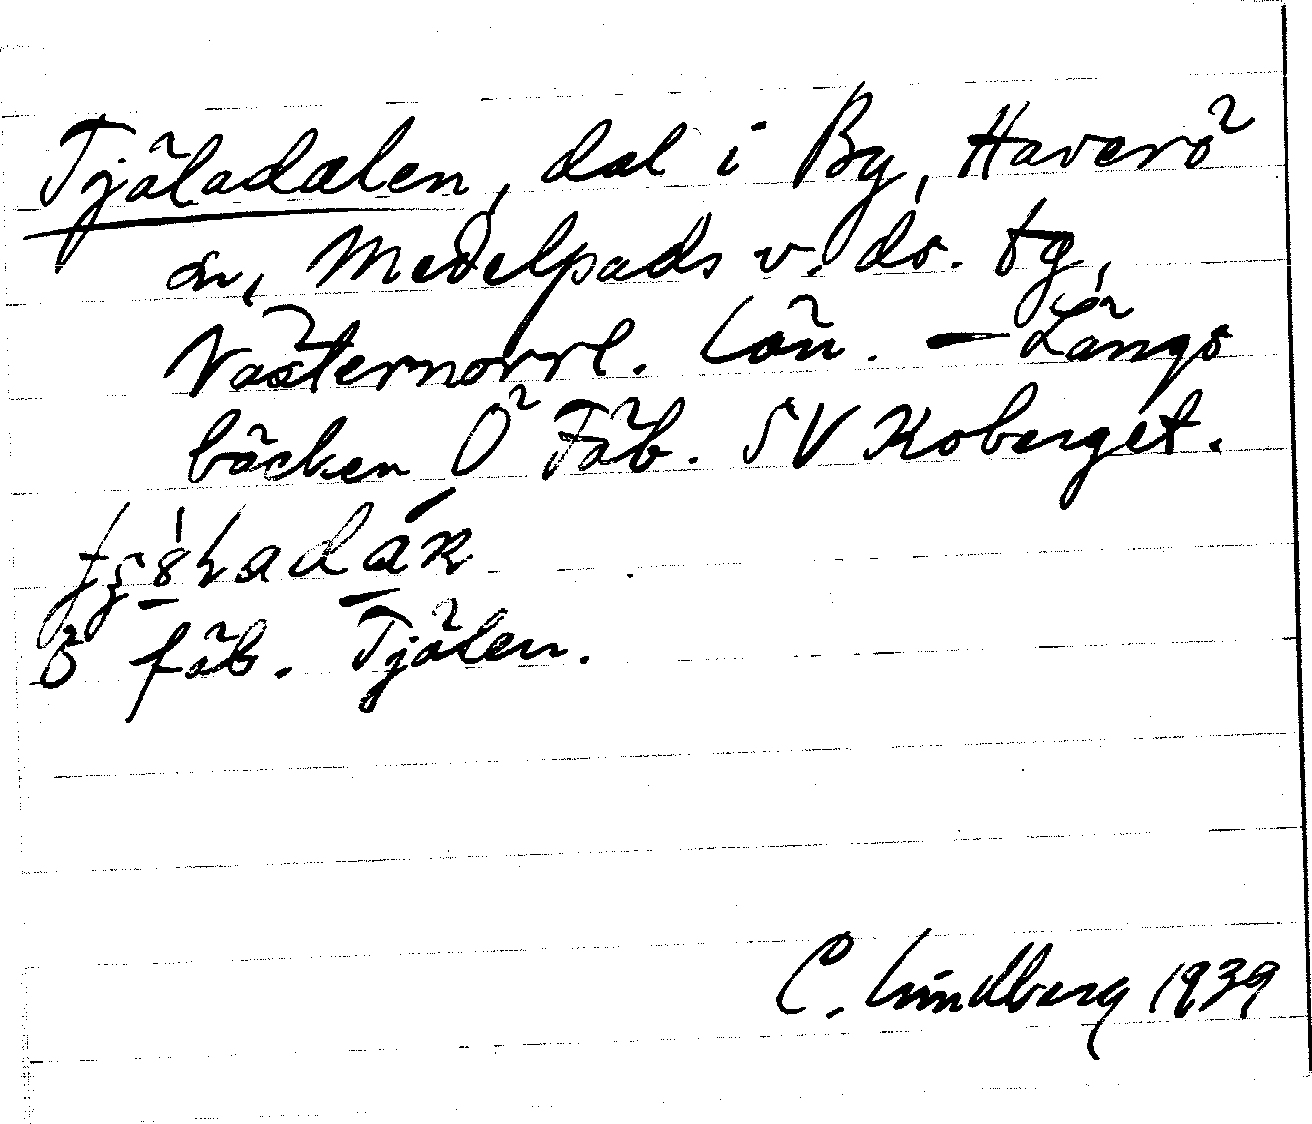 Tjäladalen, dal i By, Haverö
sn, Medelpads v. ds. tg,
Västernorrl. län. – Längs
bäcken Ö Fäb. SV Koberget.
Ö fäb. Tjälen.
C. Lindberg 1939